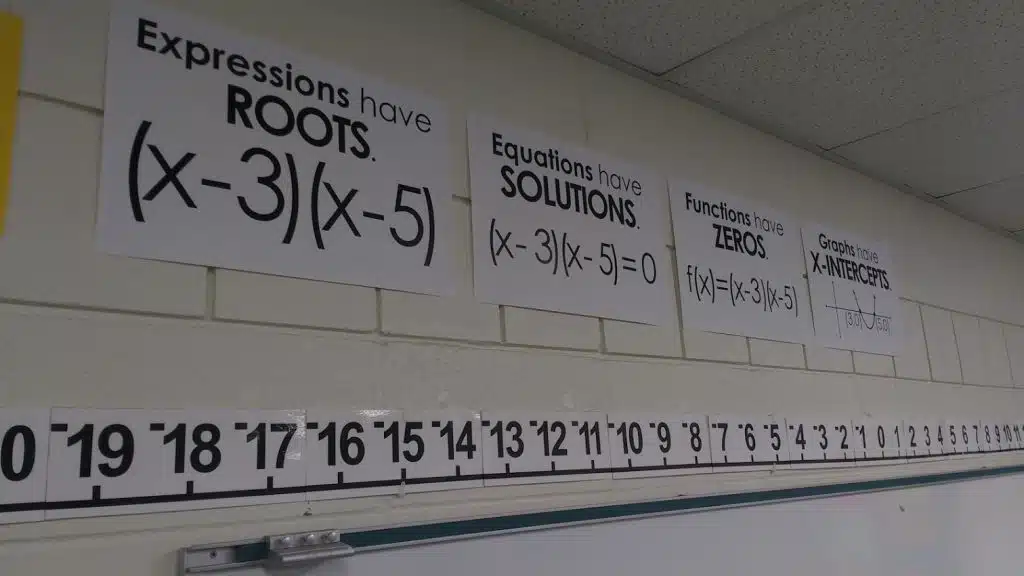 Expressions have
ROOTS.
(x-3)(x-5)
Equations have
SOLUTIONS.
(x-3)(x-5)=0
Functions have
ZEROS.
f(x)=(x-3)(x-5)
Graphs have
X-INTERCEPTS.
(3,0) (5,0)
0 -19 -18 -17 -16 -15 -14 -13 -12 -11 -10 -9 -8 -7 -6 -5 -4 -3 -2 -1 0 1 2 3 4 5 6 7 8 9 10 11